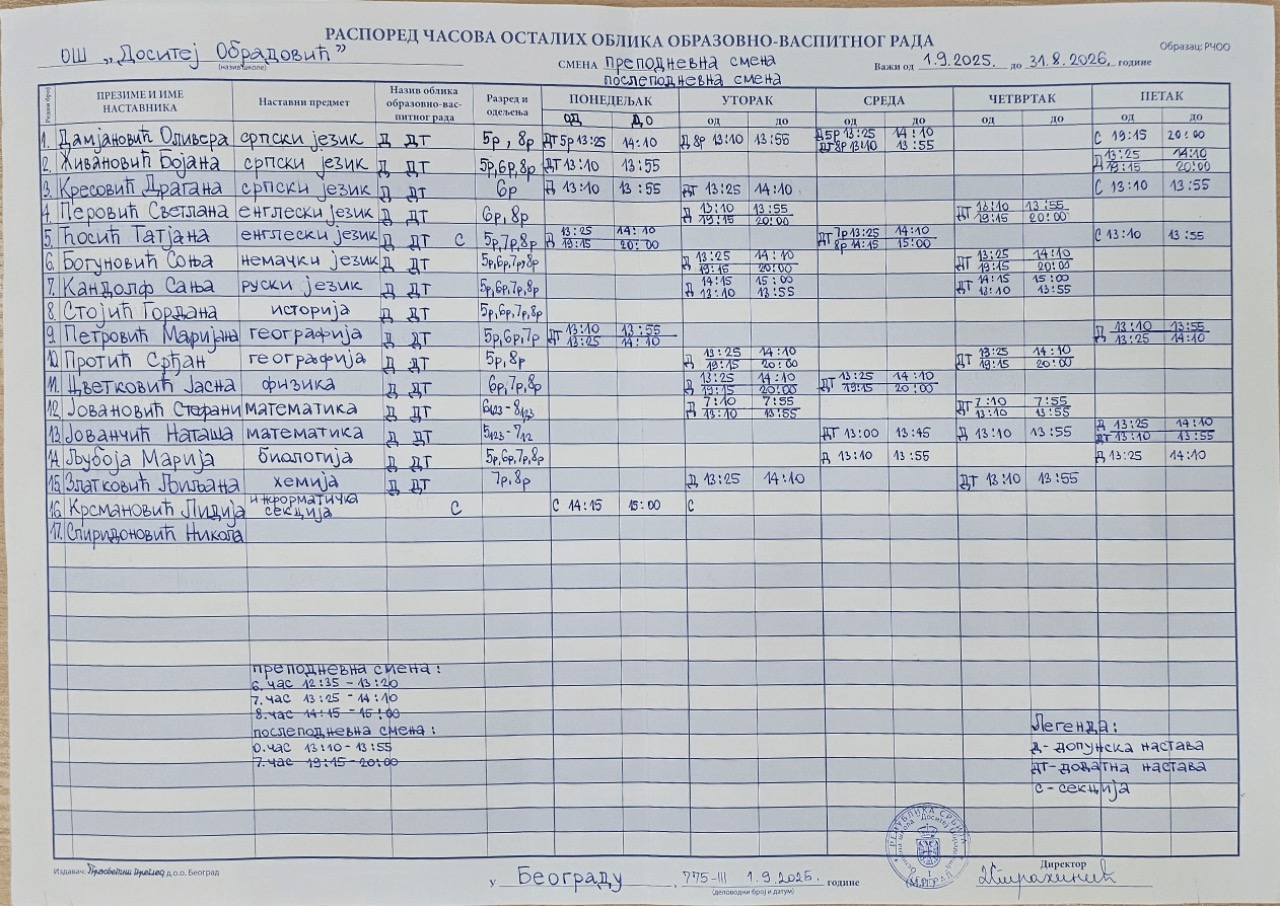 РАСПОРЕД ЧАСОВА ОСТАЛИХ ОБЛИКА ОБРАЗОВНО-ВАСПИТНОГ РАДА
Образац: РЧОО
ОШ „Доситеј Обрадовић”
(назив школе)
СМЕНА преподневна смена
послеподневна смена
Важи од 1.9.2025. до 31.8.2026. године
Редни број ПРЕЗИМЕ И ИМЕ НАСТАВНИКА Наставни предмет Назив облика образовно-васпитног рада Разред и одељења ПОНЕДЕЉАК УТОРАК СРЕДА ЧЕТВРТАК ПЕТАК
од до од до од до од до од до
1. Дамјановић Оливера српски језик Д ДТ 5р, 8р ДТ 5р 13:25 14:10 Д 8р 13:10 13:55 Д 5р 13:25 14:10 ДТ 8р 13:10 13:55 С 19:15 20:00
2. Живановић Бојана српски језик Д ДТ 5р,6р,8р ДТ 13:10 13:55 Д 13:25 14:10 19:15 20:00
3. Кресовић Драгана српски језик Д ДТ 6р Д 13:10 13:55 ДТ 13:25 14:10 С 13:10 13:55
4. Перовић Светлана енглески језик Д ДТ 6р, 8р Д 13:10 13:55 19:15 20:00 ДТ 13:10 13:55 19:15 20:00
5. Ћосић Татјана енглески језик Д ДТ С 5р,7р,8р Д 13:25 14:10 19:15 20:00 ДТ 7р 13:25 14:10 8р 14:15 15:00 С 13:10 13:55
6. Богуновић Соња немачки језик Д ДТ 5р,6р,7р,8р Д 13:25 14:10 19:15 20:00 ДТ 13:25 14:10 19:15 20:00
7. Кандолф Сања руски језик Д ДТ 5р,6р,7р,8р Д 14:15 15:00 13:10 13:55 ДТ 14:15 15:00 13:10 13:55
8. Стојић Гордана историја Д ДТ 5р,6р,7р,8р
9. Петровић Маријана географија Д ДТ 5р,6р,7р ДТ 13:10 13:55 13:25 14:10 Д 13:10 13:55 13:25 14:10
10. Протић Срђан географија Д ДТ 5р, 8р Д 13:25 14:10 19:15 20:00 ДТ 13:25 14:10 19:15 20:00
11. Цветковић Јасна физика Д ДТ 6р,7р,8р Д 13:25 14:10 19:15 20:00 ДТ 13:25 14:10 19:15 20:00
12. Јовановић Стефани математика Д ДТ 6123-8123 Д 7:10 7:55 13:10 13:55 ДТ 7:10 7:55 13:10 13:55
13. Јованчић Наташа математика Д ДТ 5123-712 ДТ 13:00 13:45 Д 13:10 13:55 Д 13:25 14:10 ДТ 13:10 13:55
14. Љубоја Марија биологија Д ДТ 5р,6р,7р,8р Д 13:10 13:55 Д 13:25 14:10
15. Златковић Љиљана хемија Д ДТ 7р, 8р Д 13:25 14:10 ДТ 13:10 13:55
16. Крсмановић Лидија информатичка секција С С 14:15 15:00 С
17. Спиридоновић Никола
преподневна смена:
6. час 12:35 - 13:20
7. час 13:25 - 14:10
8. час 14:15 - 15:00
послеподневна смена:
0. час 13:10 - 13:55
7. час 19:15 - 20:00
Легенда:
Д - допунска настава
ДТ - додатна настава
С - секција
Издавач: Просветни преглед д.о.о. Београд
у Београду, 775-III 1.9.2025. године
(деловодни број и датум)
РЕПУБЛИКА СРБИЈА
Директор